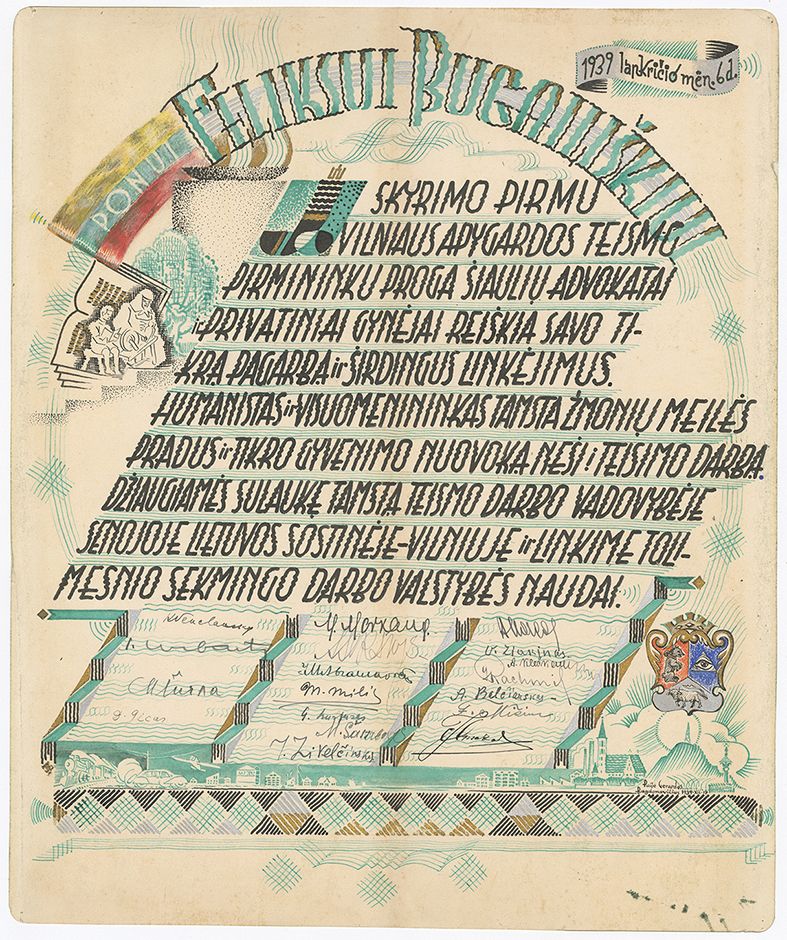 1939 lapkričio mėn. 6 d.
PONUI FELIKSUI BUGAILIŠKIUI
SKYRIMO PIRMU
VILNIAUS APYGARDOS TEISMO
PIRMININKU PROGA ŠIAULIŲ ADVOKATAI
ir PRIVATINIAI GYNĖJAI REIŠKIA SAVO TI-
KRĄ PAGARBĄ ir ŠIRDINGUS LINKĖJIMUS.
HUMANISTAS ir VISUOMENININKAS TAMSTA ŽMONIŲ MEILĖS
PRADUS ir TIKRO GYVENIMO NUOVOKĄ NEŠI į TEISIMO DARBĄ.
DŽIAUGIAMĖS SULAUKĘ TAMSTĄ TEISMO DARBO VADOVYBĖJE
SENOJOJE LIETUVOS SOSTINĖJE-VILNIUJE ir LINKIME TOLI-
MESNIO SĖKMINGO DARBO VALSTYBĖS NAUDAI.
K Venclauskis
M. Milis
M Šurna
A. Belečansky
J. Zikelčinskis